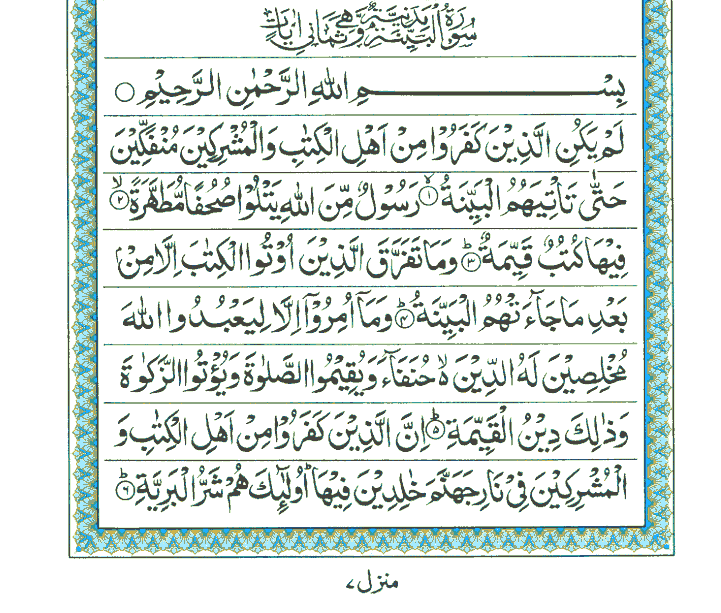 سُوْرَةُ الْبَيِّنَةِ مَدَنِيَّةٌ وَّهِيَ ثَمَانِيْ اٰيَاتٍ
بِسْمِ اللّٰهِ الرَّحْمٰنِ الرَّحِيْمِ ۝
لَمْ يَكُنِ الَّذِيْنَ كَفَرُوْا مِنْ اَهْلِ الْكِتٰبِ وَالْمُشْرِكِيْنَ مُنْفَكِّيْنَ
حَتّٰى تَاْتِيَهُمُ الْبَيِّنَةُ ۙ﴿۱﴾ رَسُوْلٌ مِّنَ اللّٰهِ يَتْلُوْا صُحُفًا مُّطَهَّرَةً ۙ﴿۲﴾
فِيْهَا كُتُبٌ قَيِّمَةٌ ؕ﴿۳﴾ وَمَا تَفَرَّقَ الَّذِيْنَ اُوْتُوا الْكِتٰبَ اِلَّا مِنْۢ
بَعْدِ مَا جَآءَتْهُمُ الْبَيِّنَةُ ؕ﴿۴﴾ وَمَاۤ اُمِرُوْۤا اِلَّا لِيَعْبُدُوا اللّٰهَ
مُخْلِصِيْنَ لَهُ الدِّيْنَ ۙ حُنَفَآءَ وَيُقِيْمُوا الصَّلٰوةَ وَيُؤْتُوا الزَّكٰوةَ
وَذٰلِكَ دِيْنُ الْقَيِّمَةِ ؕ﴿۵﴾ اِنَّ الَّذِيْنَ كَفَرُوْا مِنْ اَهْلِ الْكِتٰبِ وَ
الْمُشْرِكِيْنَ فِيْ نَارِ جَهَنَّمَ خٰلِدِيْنَ فِيْهَا ؕ اُولٰٓئِكَ هُمْ شَرُّ الْبَرِيَّةِ ؕ﴿۶﴾
منزل ۷